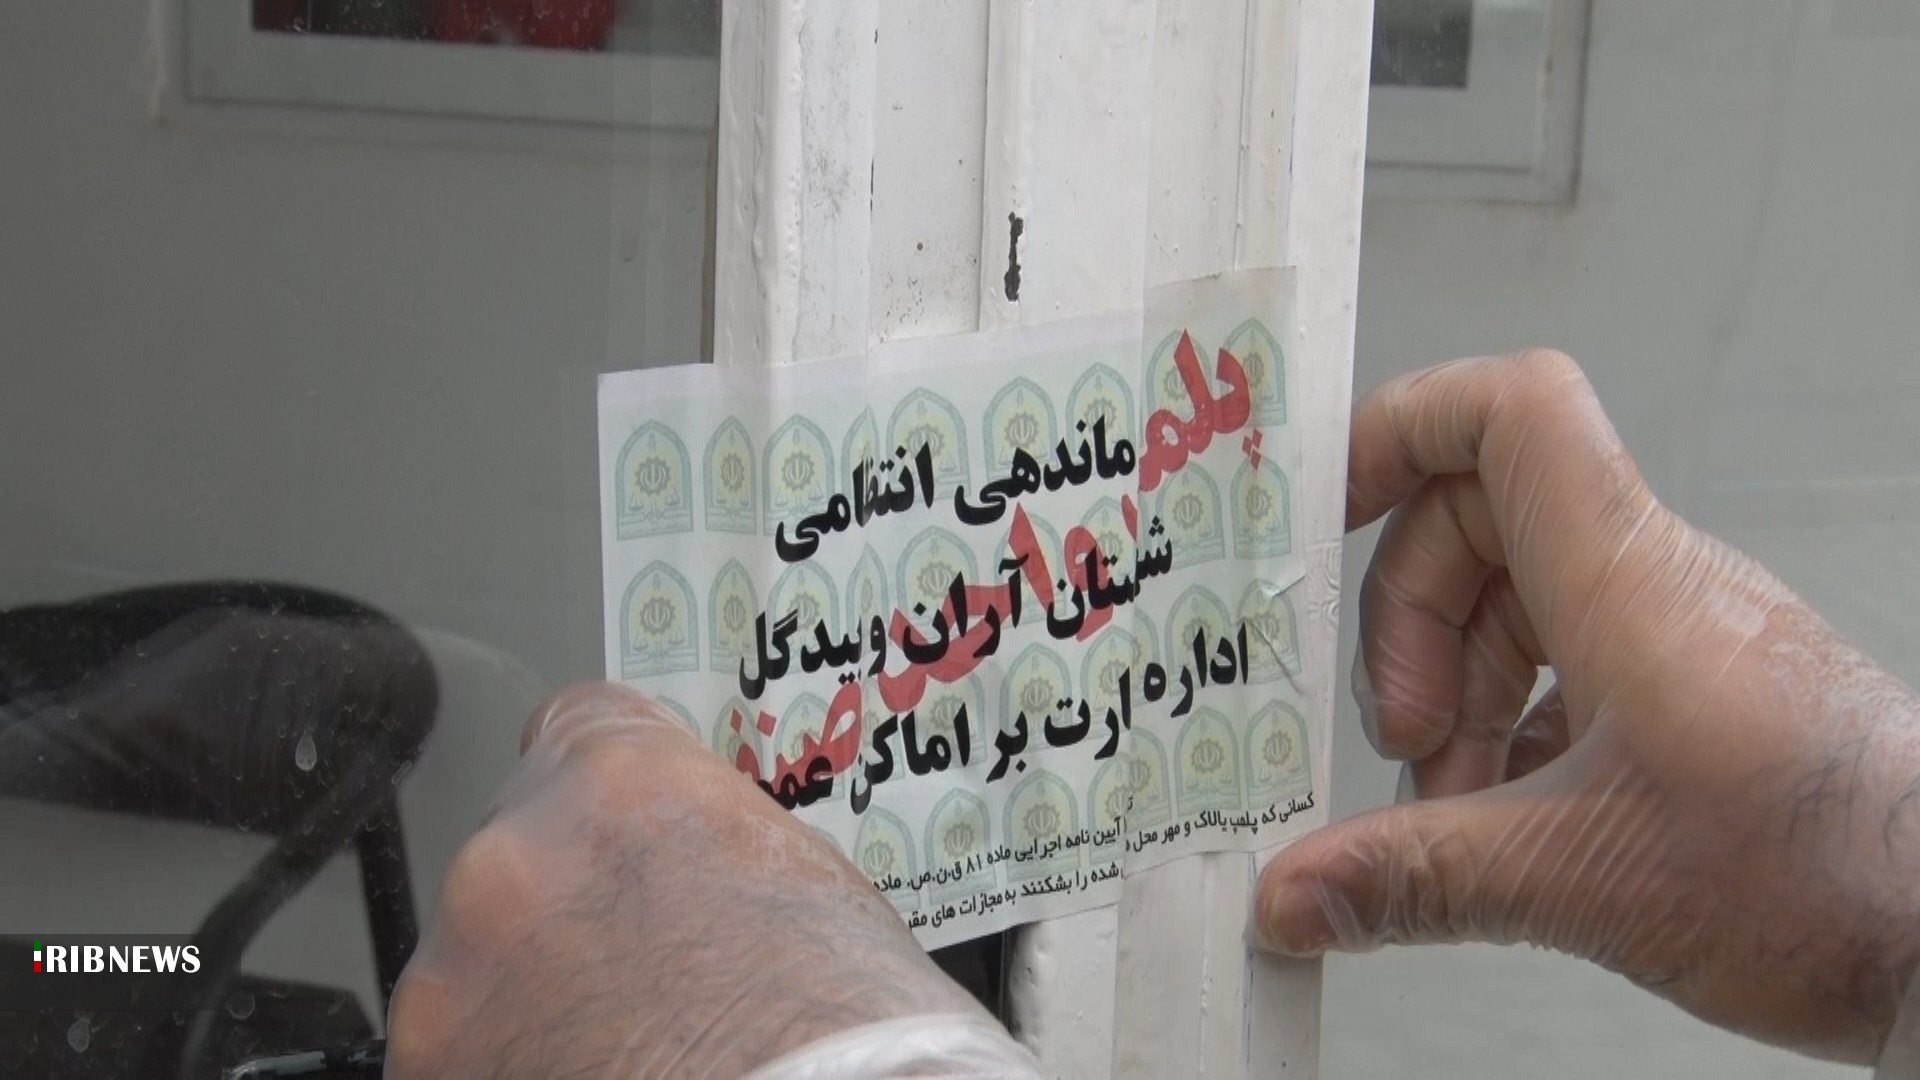 پلمپ واحد صنفی
ماندهی انتظامی
شهرستان آران وبیدگل
اداره ارت بر اماکن عمو
کسانی که پلمپ یالاک و مهر محل
آیین نامه اجرایی ماده ۸۱ ق.ن.ص. ماده
شده را بشکنند به مجازات های مقر
IRIBNEWS